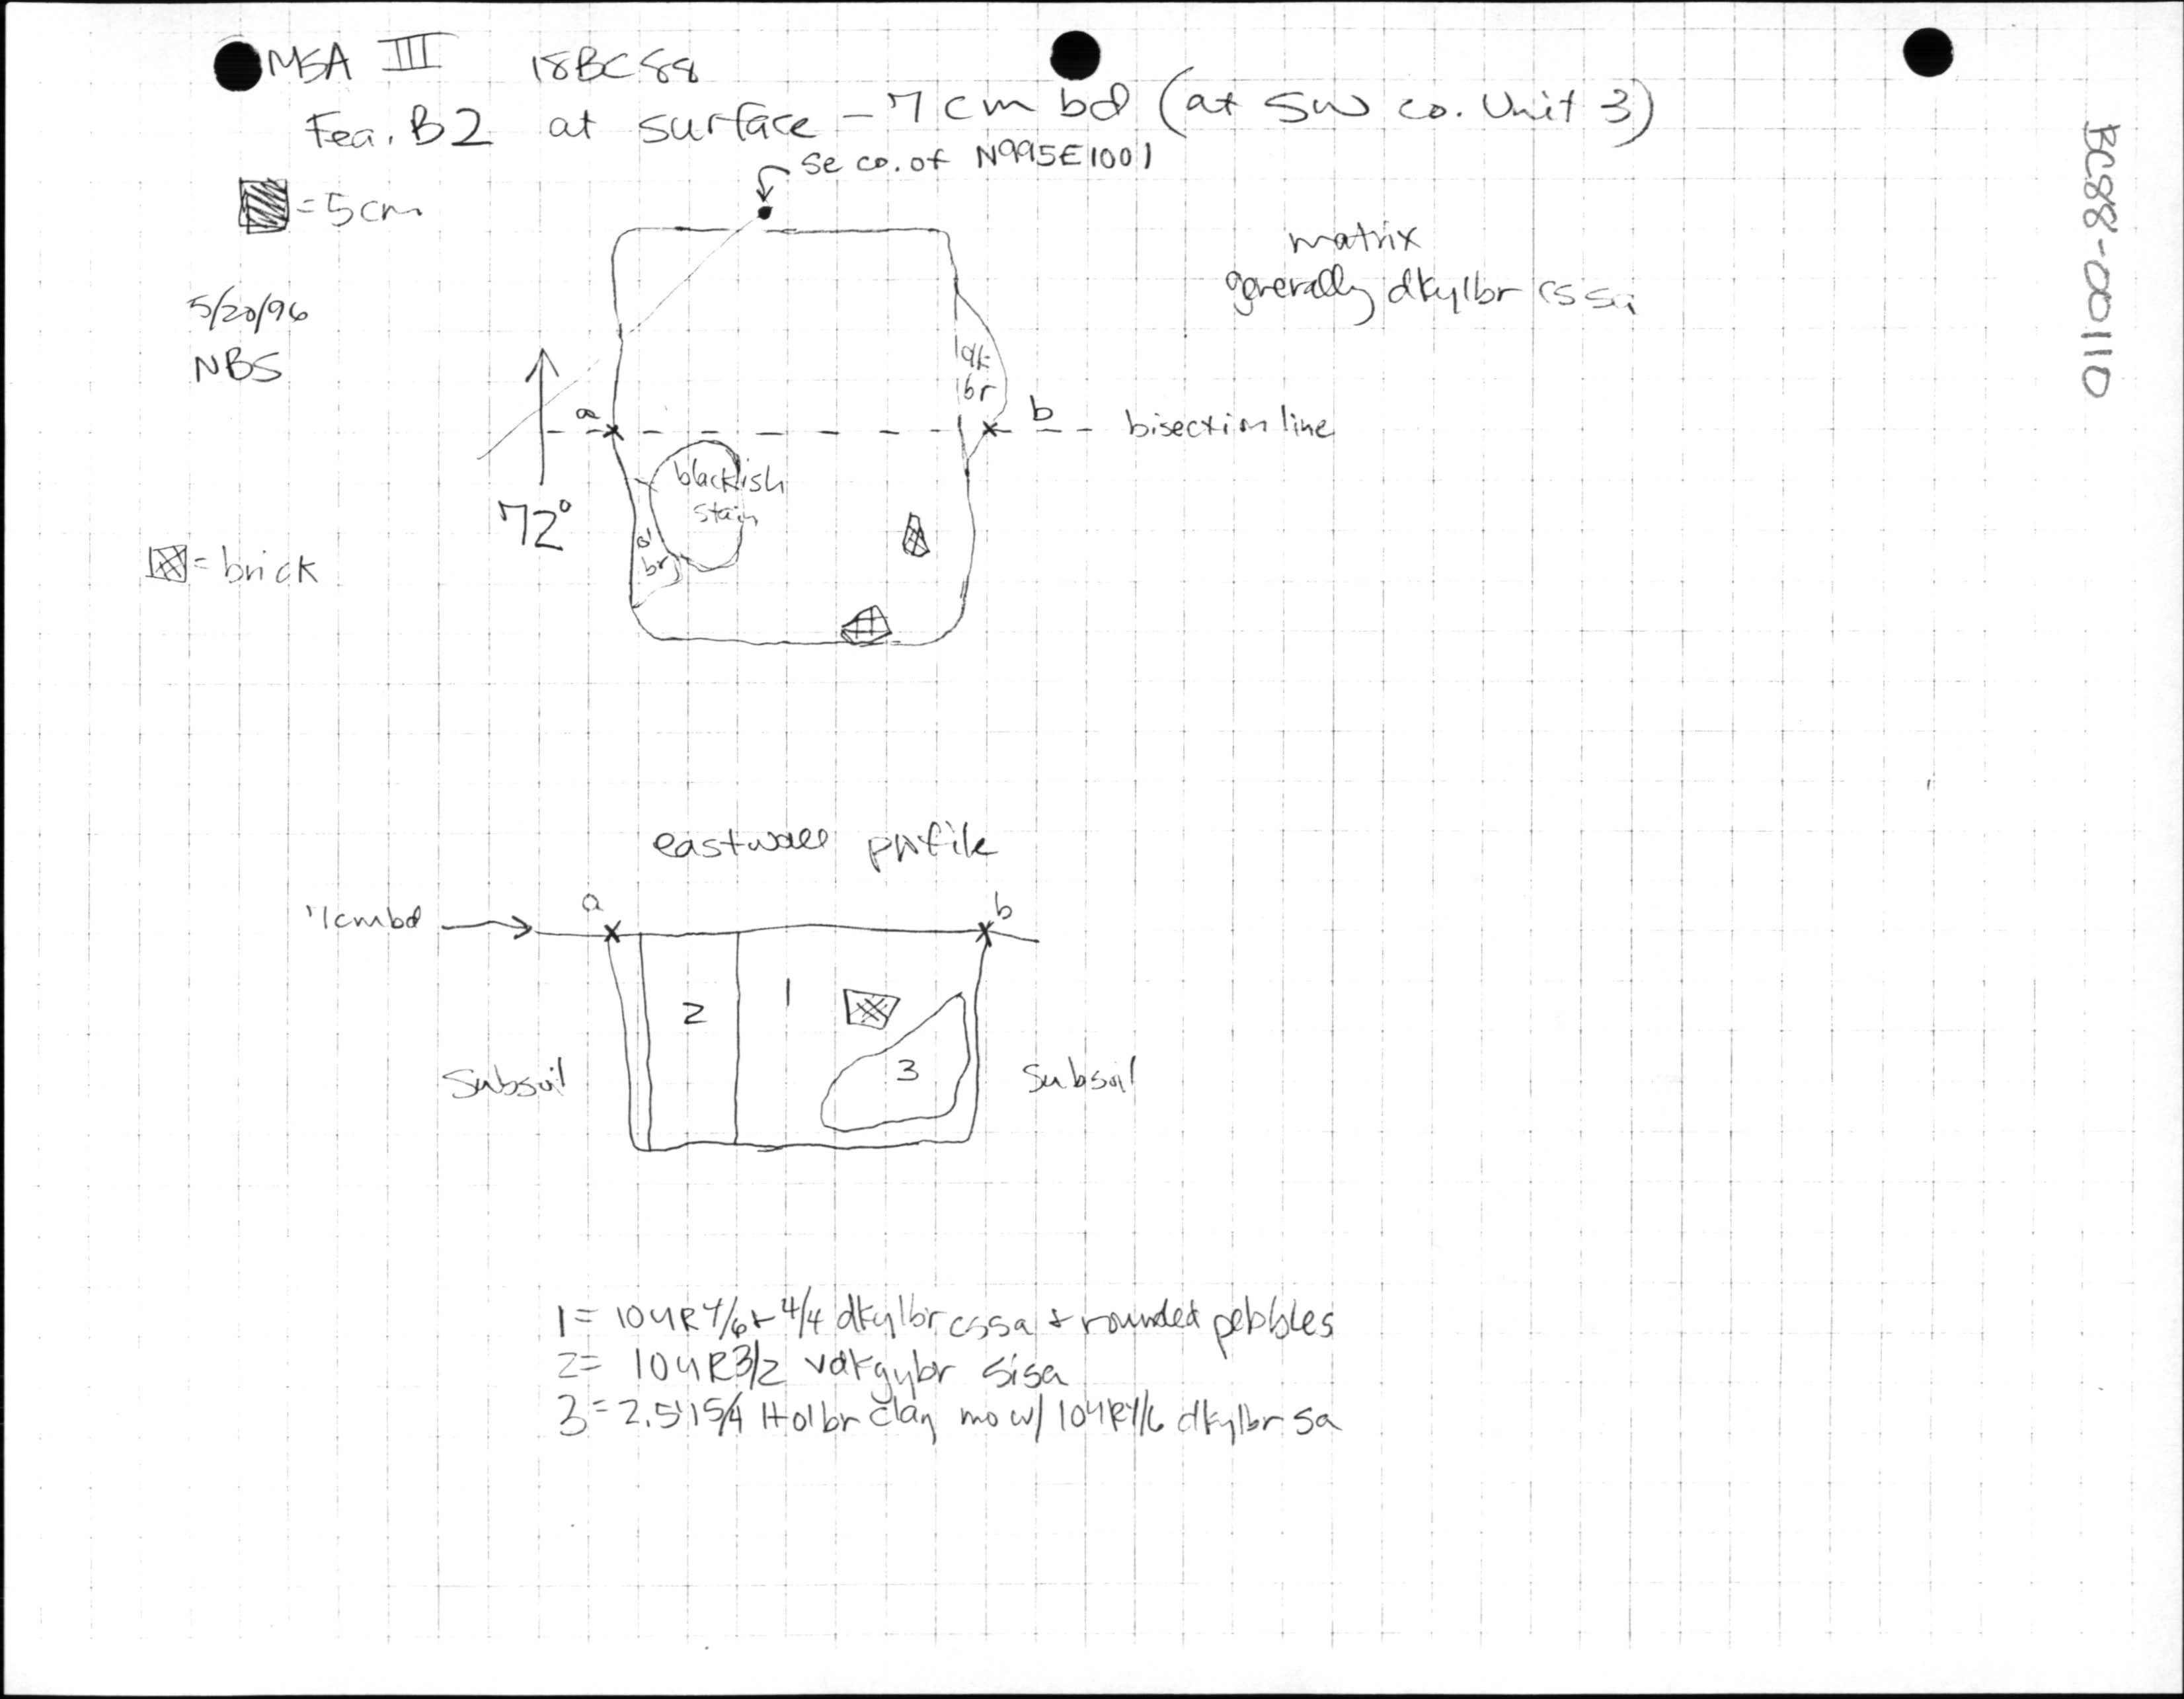 MSA III 18BC88
Fea. B2 at surface - 7 cm bd (at SW co. Unit 3)
se co. of N995E1001
= 5cm
matrix
generally dkylbr cssa
5/20/96
NBS
dk
br
a
b
bisection line
blackish
stain
72°
br
= brick
eastwall profile
7cmbd
a
b
2
1
3
Subsoil
Subsoil
1 = 10YR 4/6 + 4/4 dkylbr cssa + rounded pebbles
2 = 10YR3/2 vdkgybr sisa
3 = 2.5Y5/4 ltolbr clay mo w/ 10YR4/6 dkylbr sa
BC88-00110